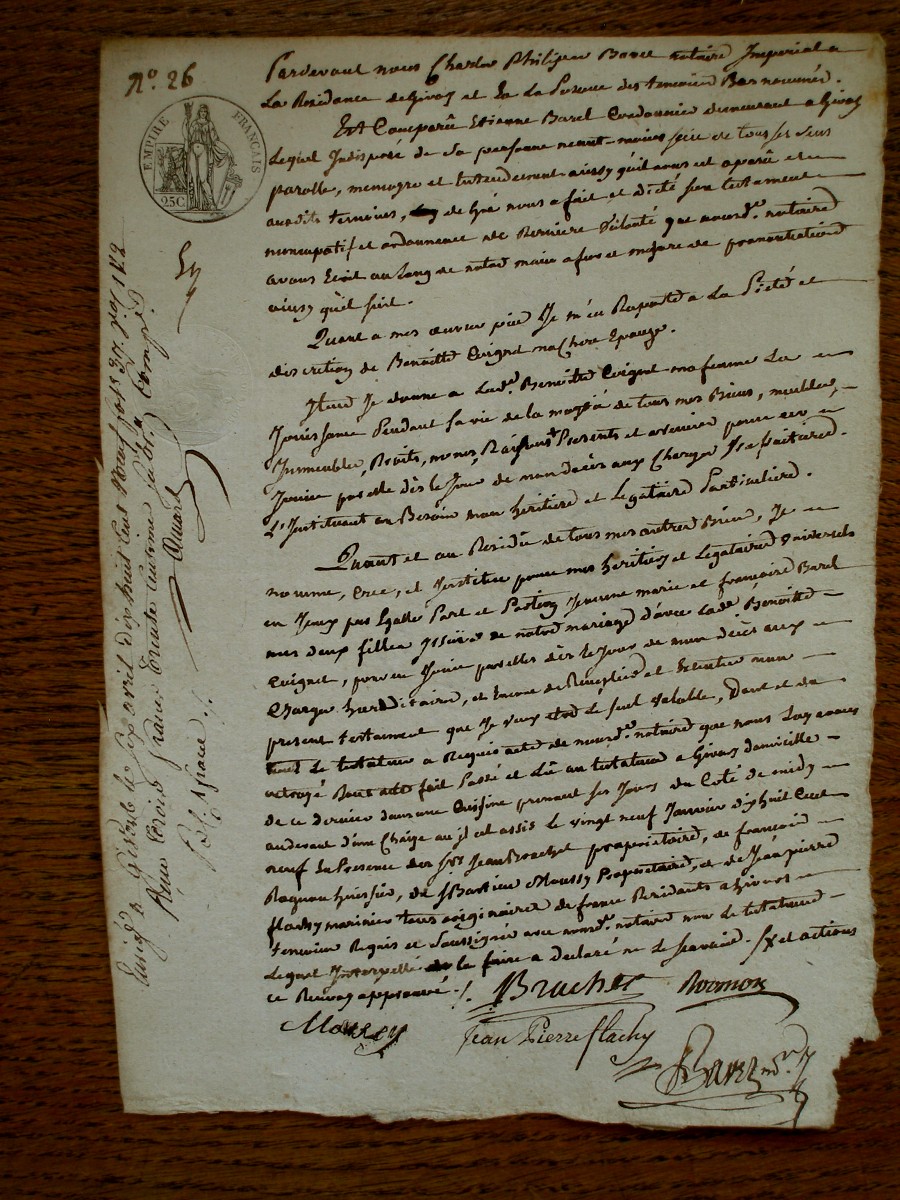 N.º 26
EMPIRE FRANÇAIS
25C
Pardevant nous Charles Philipeau Barel notaire Imperial a
La Residance de Givors et En La Presence des temoins Bas nommés.
Est Comparû Etienne Barel Cordonnier demeurant a Givors
Lequel Indisposé de Sa personne neant-moins sain de tous ses Sens
parolle, memoire et Entendement ainsy qu'il nous est aparû et
auxdits temoins, de Gré nous a fait et dicté Son testament
noncupatif et ordonnance de Derniere Volonté que nousd. notaire
avons Ecrit au long de notre main a fur et mesure de prononciation
ainsy qu'il suit.
Quant a mes œuvres pies Je m'en Raporte a La Pieté et
discretion de Benoitte Coignet ma Chere Epouze.
Item Je donne a Lade Benoitte Coignet ma femme La
Jouissance Pendant sa vie de la moitié de tous mes Biens, meubles,
Immeubles, Droits, noms, Raisons Presents et avenirs pour en
Jouir par elle dès le Jour de mon decès aux Charges
L'Instituant au Besoin mon heritiere et Legataire Particuliere.
Quant et au Residu de tous mes autres Biens, Je
nomme, Crée, et Institue pour mes heritiers et Legataires Universels
en Jceux par Egalle Part et Portion Jeanne marie et françoise Barel
mes deux filles Issues de notre mariage d'avec Lade Benoitte
Coignet, pour en Jouir par elles dès le Jour de mon décès aux
Charges hereditaires, et Encore de Remplir et Executer mon
present testament que Je veux etre Le seul valable, Dont et du
tout Le testateur a Requis acte de nousd. notaire que nous Luy avons
octroyé Dont acte fait Passé et Lû au testateur a Givors domicille
de ce dernier dans une Cuisine prenant ses Jours du Coté de midy
audevant d'une Chaise ou il est assis Le vingt neuf Janvier dixhuit Cent
neuf En Presence des Srs Jean Brachet proprietaire, de francois
huissier, de Proprietaire, et de Jean pierre
flachy marinier tous originaires de france Residants a Givors
temoins Requis et Soussignés avec nousd. notaire non Le testateur
Lequel Interpellé de le faire a declaré ne Le Savoir. et actions
ce Renvoy approuvé ./.
JBrachet
Jean Pierre flachy
Barel n.re
Enregé a Givors le Six avril dix huit Cent Neuf fol. 37
Reçu trois francs trente centimes